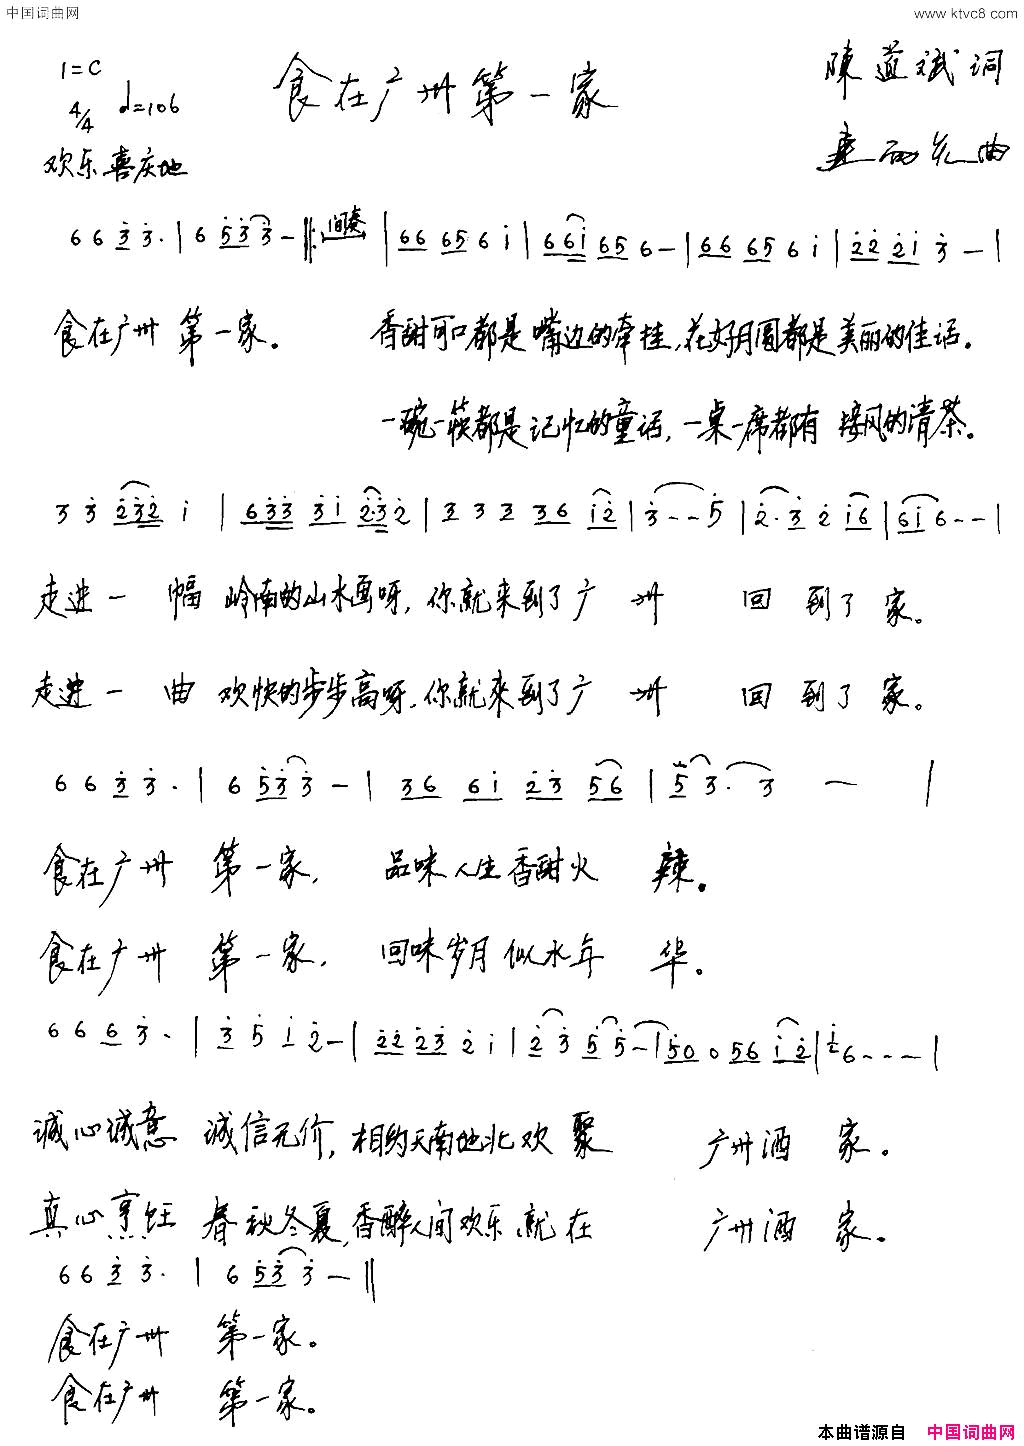 中国词曲网
www.ktvc8.com
1=C
4/4 ♩=106
食在广州第一家
陳道斌词
曲
欢乐喜庆地
6 6 3 3 · | 6 5 3 3 - ‖: 间奏 | 6 6 6 5 6 i | 6 6 i 6 5 6 - | 6 6 6 5 6 i | 2 2 2 i 3 - |
食在广州 第一家。 香甜可口都是嘴边的牵挂,花好月圆都是美丽的佳话。
一碗一筷都是记忆的童话,一桌一席都有接风的清茶。
3 3 2 3 2 i | 6 3 3 3 i 2·3 2 | 3 3 3 3 6 i 2 | 3 - - 5 | 2 · 3 2 i 6 | 6 i 6 - - |
走进一 幅 岭南的山水画呀,你就来到了广 州 回 到了 家。
走进一 曲 欢快的步步高呀,你就來到了广 州 回 到了 家。
6 6 3 3 · | 6 5 3 3 - | 3 6 6 i 2 3 5 6 | 5 3 · 3 - |
食在广州 第一家, 品味人生香甜火 辣。
食在广州 第一家, 回味岁月似水年 华。
6 6 6 3 · | 3 5 i 2 - | 2 2 2 3 2 i | 2 3 5 5 - | 5 0 0 5 6 i 2 | 2 6 - - - |
诚心诚意 诚信无价,相约天南地北欢 聚 广州酒 家。
真心烹饪 春秋冬夏,香醉人间欢乐就在 广州酒 家。
6 6 3 3 · | 6 5 3 3 - ‖
食在广州 第一家。
食在广州 第一家。
本曲谱源自 中国词曲网